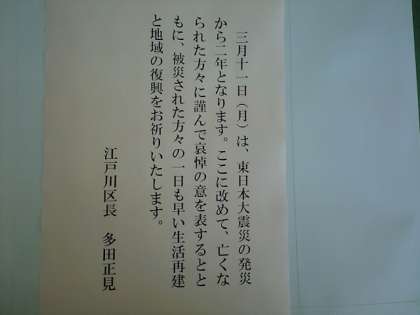 三月十一日（月）は、東日本大震災の発災
から二年となります。ここに改めて、亡くな
られた方々に謹んで哀悼の意を表するとと
もに、被災された方々の一日も早い生活再建
と地域の復興をお祈りいたします。
江戸川区長　多田正見